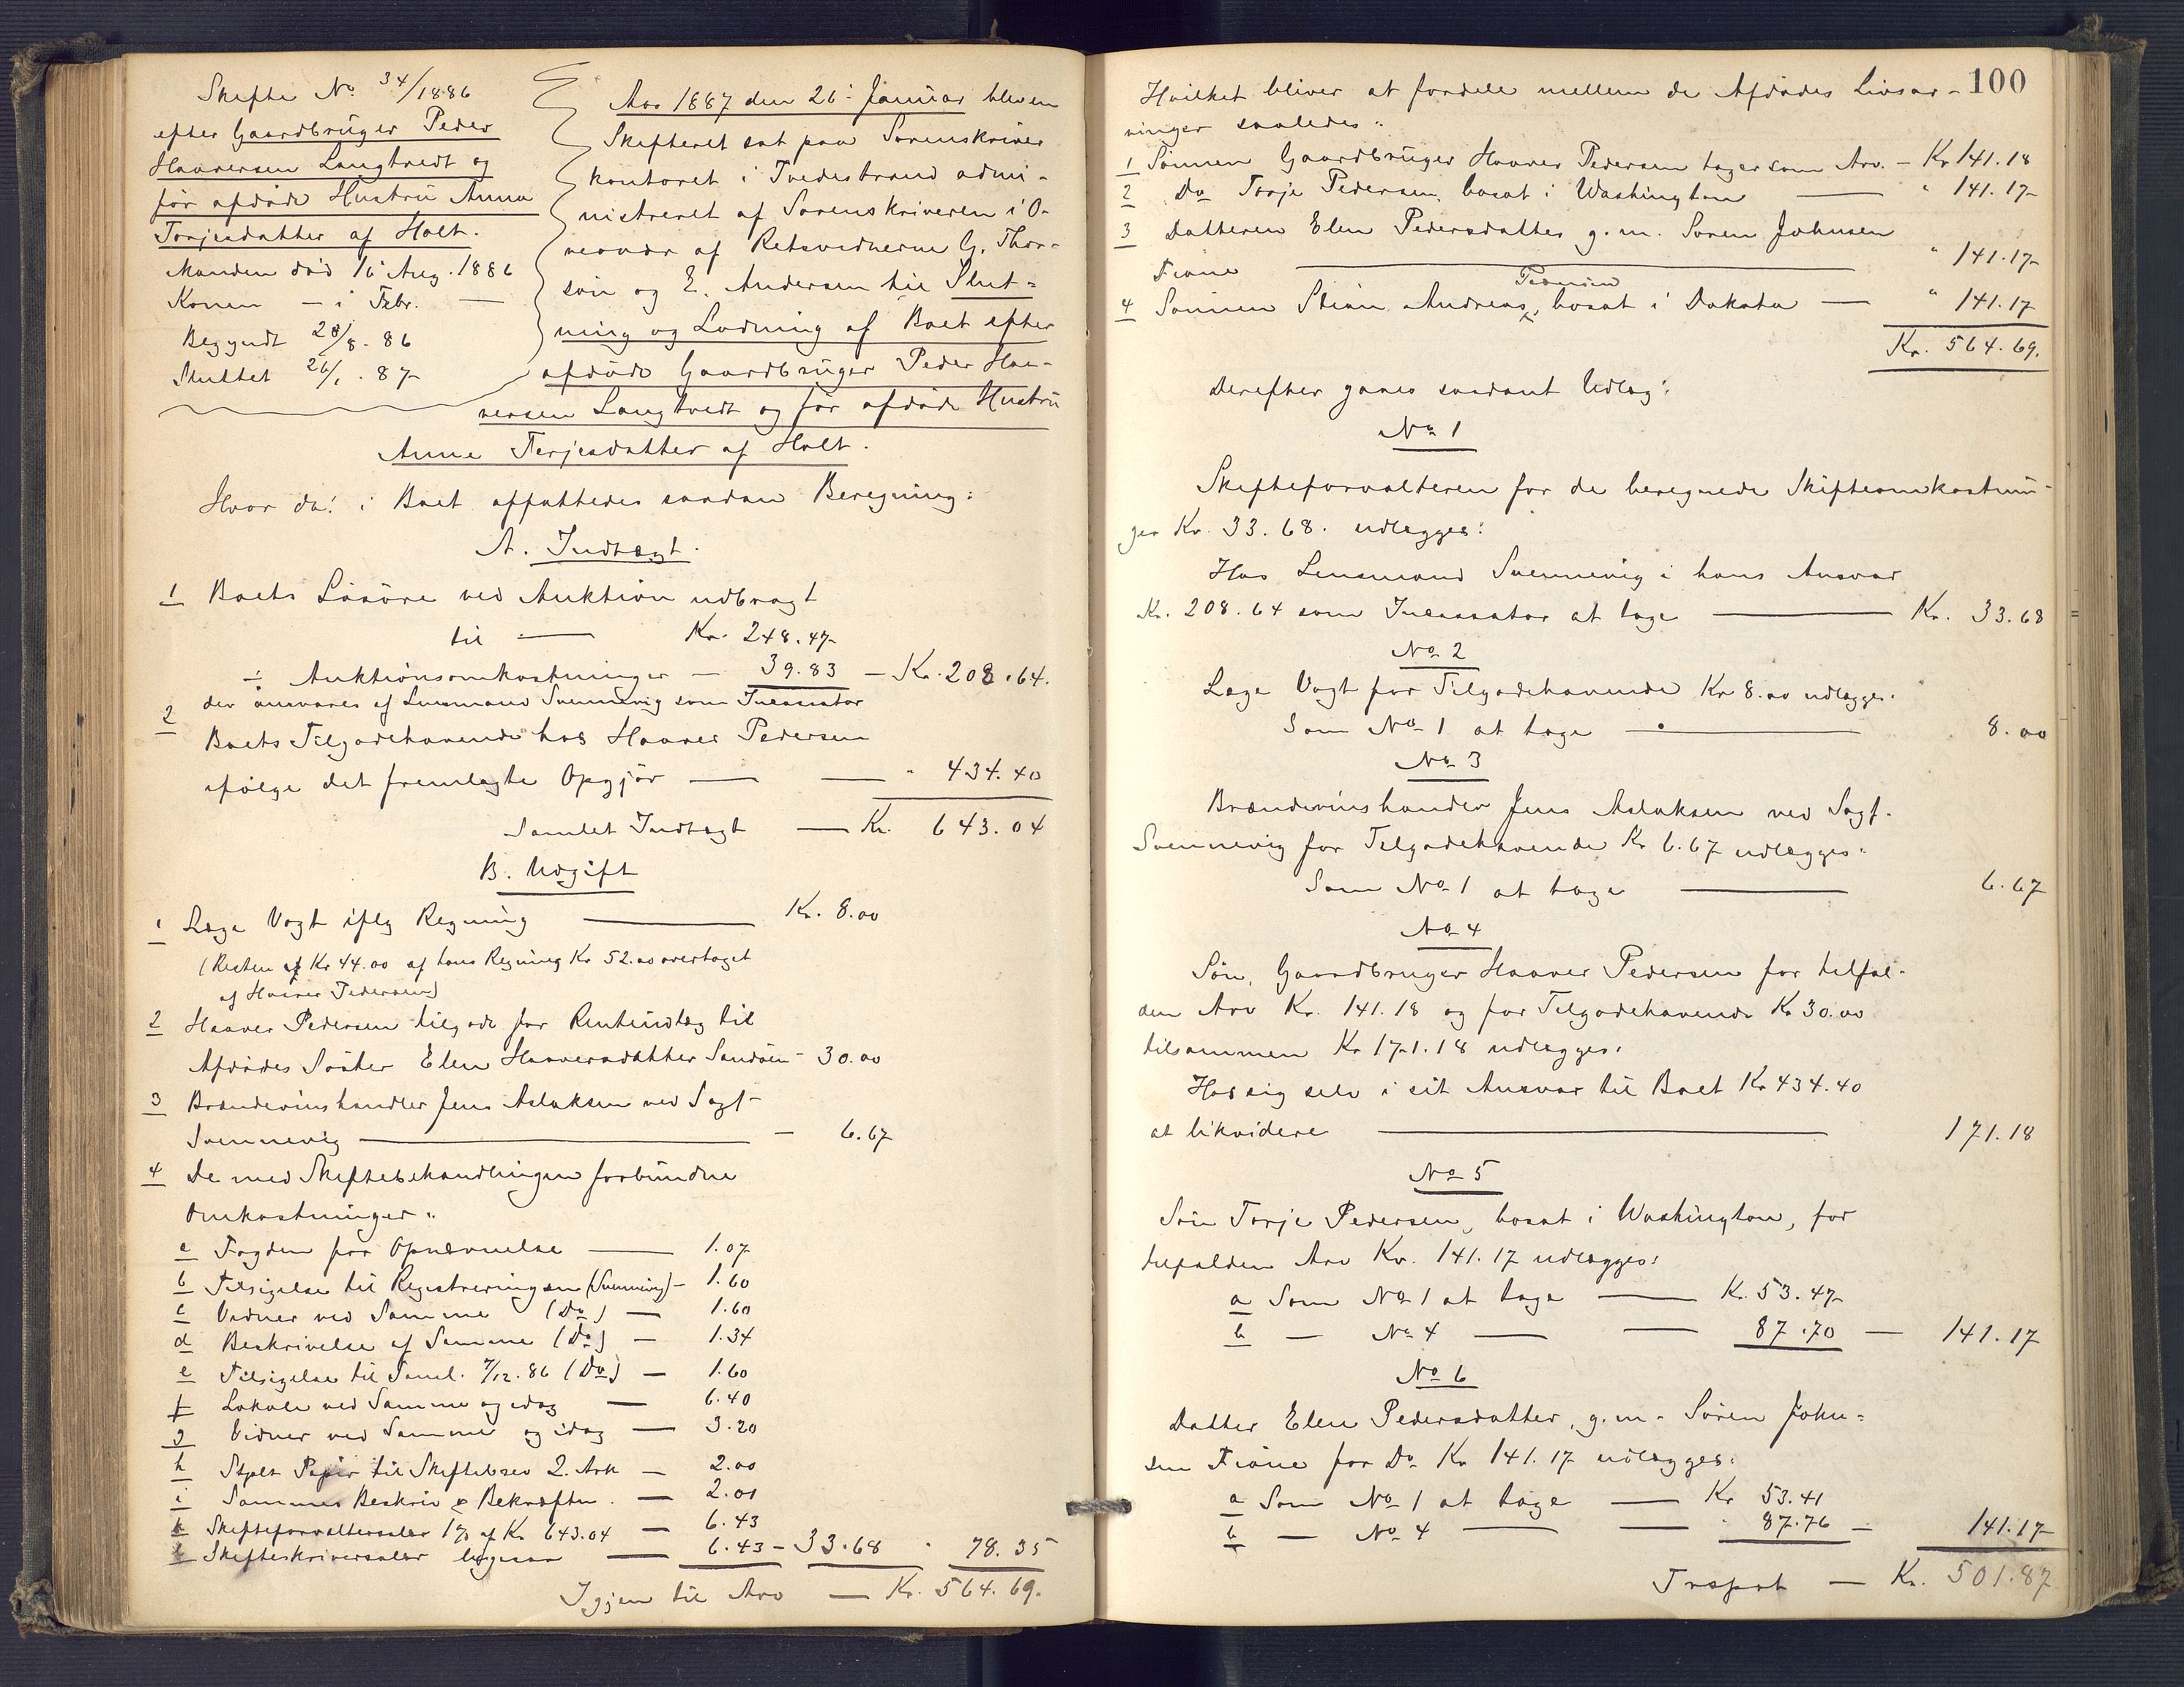 Skifte No 34/1886
efter Gaardbruger Peder
Haaversen Langtvedt og
før afdøde Hustru Anne
Torjesdatter af Holt.
Manden død 16 Aug. 1886
Konen — i Febr. —
Begyndt 28/8. 86
Sluttet 26/1. 87
Aar 1887 den 26. Januar bleven
Skifteret sat paa Sorenskriver
kontoret i Tvedestrand admi-
nistreret af Sorenskriveren i O-
vervær af Retsvidnerne G. Thor-
søn og E. Andersen til Slut-
ning og Lodning af Boet efter
afdøde Gaardbruger Peder Haa-
versen Langtvedt og før afdøde Hustru
Anne Terjesdatter af Holt.
Hvor da: i Boet affattedes saadan Beregning:
A. Indtægt.
1 Boets Løsøre ved Auktion udbragt
til — Kr. 248.47
÷ Auktionsomkostninger — 39.83 — Kr. 208.64.
der ansvares af Lensmand Svennevig som Incassator
2 Boets Tilgodehavende hos Haaver Pedersen
ifølge det fremlagte Opgjør — — " 434.40
Samlet Indtægt — Kr. 643.04
B. Udgift
1 Læge Vogt iflg Regning — Kr. 8.00
(Resten af Kr 44.00 af hans Regning Kr 52.00 overtaget
af Haaver Pedersen)
2 Haaver Pedersen tilgode for Rentindtæg til
Afdødes Søster Elen Haaversdatter Sandøen - 30.00
3 Brændevinshandler Jens Aslaksen ved Sagf-
Svennevig — - 6.67
4 De med Skiftebehandlingen forbundne
Omkostninger:
a Fogden for Opnævnelse — 1.07
b Tilsigelse til Registreringen (Svennevig) - 1.60
c Vidner ved Samme (Do) — 1.60
d Beskrivelse af Samme (Do) — 1.34
e Tilsigelse til Saml. 7/12. 86 (Do) — 1.60
f Lokale ved Samme og idag — 6.40
g Vidner ved Samme og idag — 3.20
h Stplt Papir til Skiftebrev 2. Ark — 2.00
i Sammes Beskriv & Bekræftn. — 2.01
k Skifteforvaltersalær 1% af Kr. 643.04 — 6.43
l Skifteskriversalær ligesaa — 6.43 - 33.68 " 78.35
Igjen til Arv — Kr. 564.69.
100
Hvilket bliver at fordele mellem de Afdødes Livsar-
vinger saaledes:
1 Sønnen Gaardbruger Haaver Pedersen tager som Arv. - Kr 141.18
2 Do Torje Pedersen, bosat i Washington — " 141.17
3 Datteren Elen Pedersdatter g. m. Søren Johnsen
Fiane — " 141.17
Pedersen
4 Sønnen Stian Andreas, bosat i Dakota — " 141.17
Kr. 564.69.
Derefter gjøres saadant Udlæg:
No 1
Skifteforvalteren for de beregnede Skifteomkostnin-
ger Kr. 33.68. udlægges:
Hos Lensmand Svennevig i hans Ansvar
Kr. 208.64 som Incassator at tage — Kr. 33.68
No 2
Læge Vogt for Tilgodehavende Kr 8.00 udlægges:
Som No 1 at tage — 8.00
No 3
Brændevinshandler Jens Aslaksen ved Sagf.
Svennevig for Tilgodehavende Kr 6.67 udlægges:
Som No 1 at tage — 6.67
No 4
Søn, Gaardbruger Haaver Pedersen for tilfal-
den Arv Kr. 141.18 og for Tilgodehavende Kr 30.00
tilsammen Kr 171.18 udlægges:
Hos sig selv i sit Ansvar til Boet Kr 434.40
at likvidere — 171.18
No 5
Søn Torje Pedersen, bosat i Washington, for
tilfalden Arv Kr. 141.17 udlægges:
a Som No 1 at tage — Kr. 53.47
b — No 4 — — 87.70 — 141.17
No 6
Datter Elen Pedersdatter, g. m. Søren John-
sen Fiane for Do Kr 141.17 udlægges:
a Som No 1 at tage — Kr 53.41
b — No 4 — — " 87.76 — 141.17
Trsport — Kr. 501.87